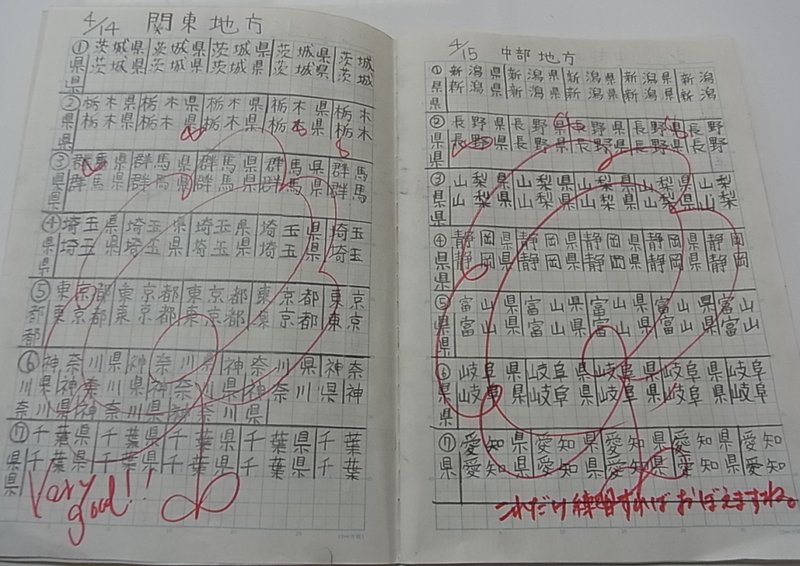 4/14 関東地方
①茨城県茨城県茨城県茨城県茨城
県茨城県茨城県茨城県茨城県茨城
県
②栃木県栃木県栃木県栃木県栃木
県栃木県栃木県栃木県栃木県栃木
県
③群馬県群馬県群馬県群馬県群馬
県群馬県群馬県群馬県群馬県群馬
県
④埼玉県埼玉県埼玉県埼玉県埼玉
県埼玉県埼玉県埼玉県埼玉県埼玉
県
⑤東京都東京都東京都東京都東京
都東京都東京都東京都東京都東京
都
⑥神奈川県神奈川県神奈川県神奈
川県神奈川県神奈川県神奈川県神
奈川県神奈川県神奈川県
⑦千葉県千葉県千葉県千葉県千葉
県千葉県千葉県千葉県千葉県千葉
県
Very
good!!
4/15 中部地方
①新潟県新潟県新潟県新潟県新潟
県新潟県新潟県新潟県新潟県新潟
県
②長野県長野県長野県長野県長野
県長野県長野県長野県長野県長野
県
③山梨県山梨県山梨県山梨県山梨
県山梨県山梨県山梨県山梨県山梨
県
④静岡県静岡県静岡県静岡県静岡
県静岡県静岡県静岡県静岡県静岡
県
⑤富山県富山県富山県富山県富山
県富山県富山県富山県富山県富山
県
⑥岐阜県岐阜県岐阜県岐阜県岐阜
県岐阜県岐阜県岐阜県岐阜県岐阜
県
⑦愛知県愛知県愛知県愛知県愛知
県愛知県愛知県愛知県愛知県愛知
これだけ練習すればおぼえますね。